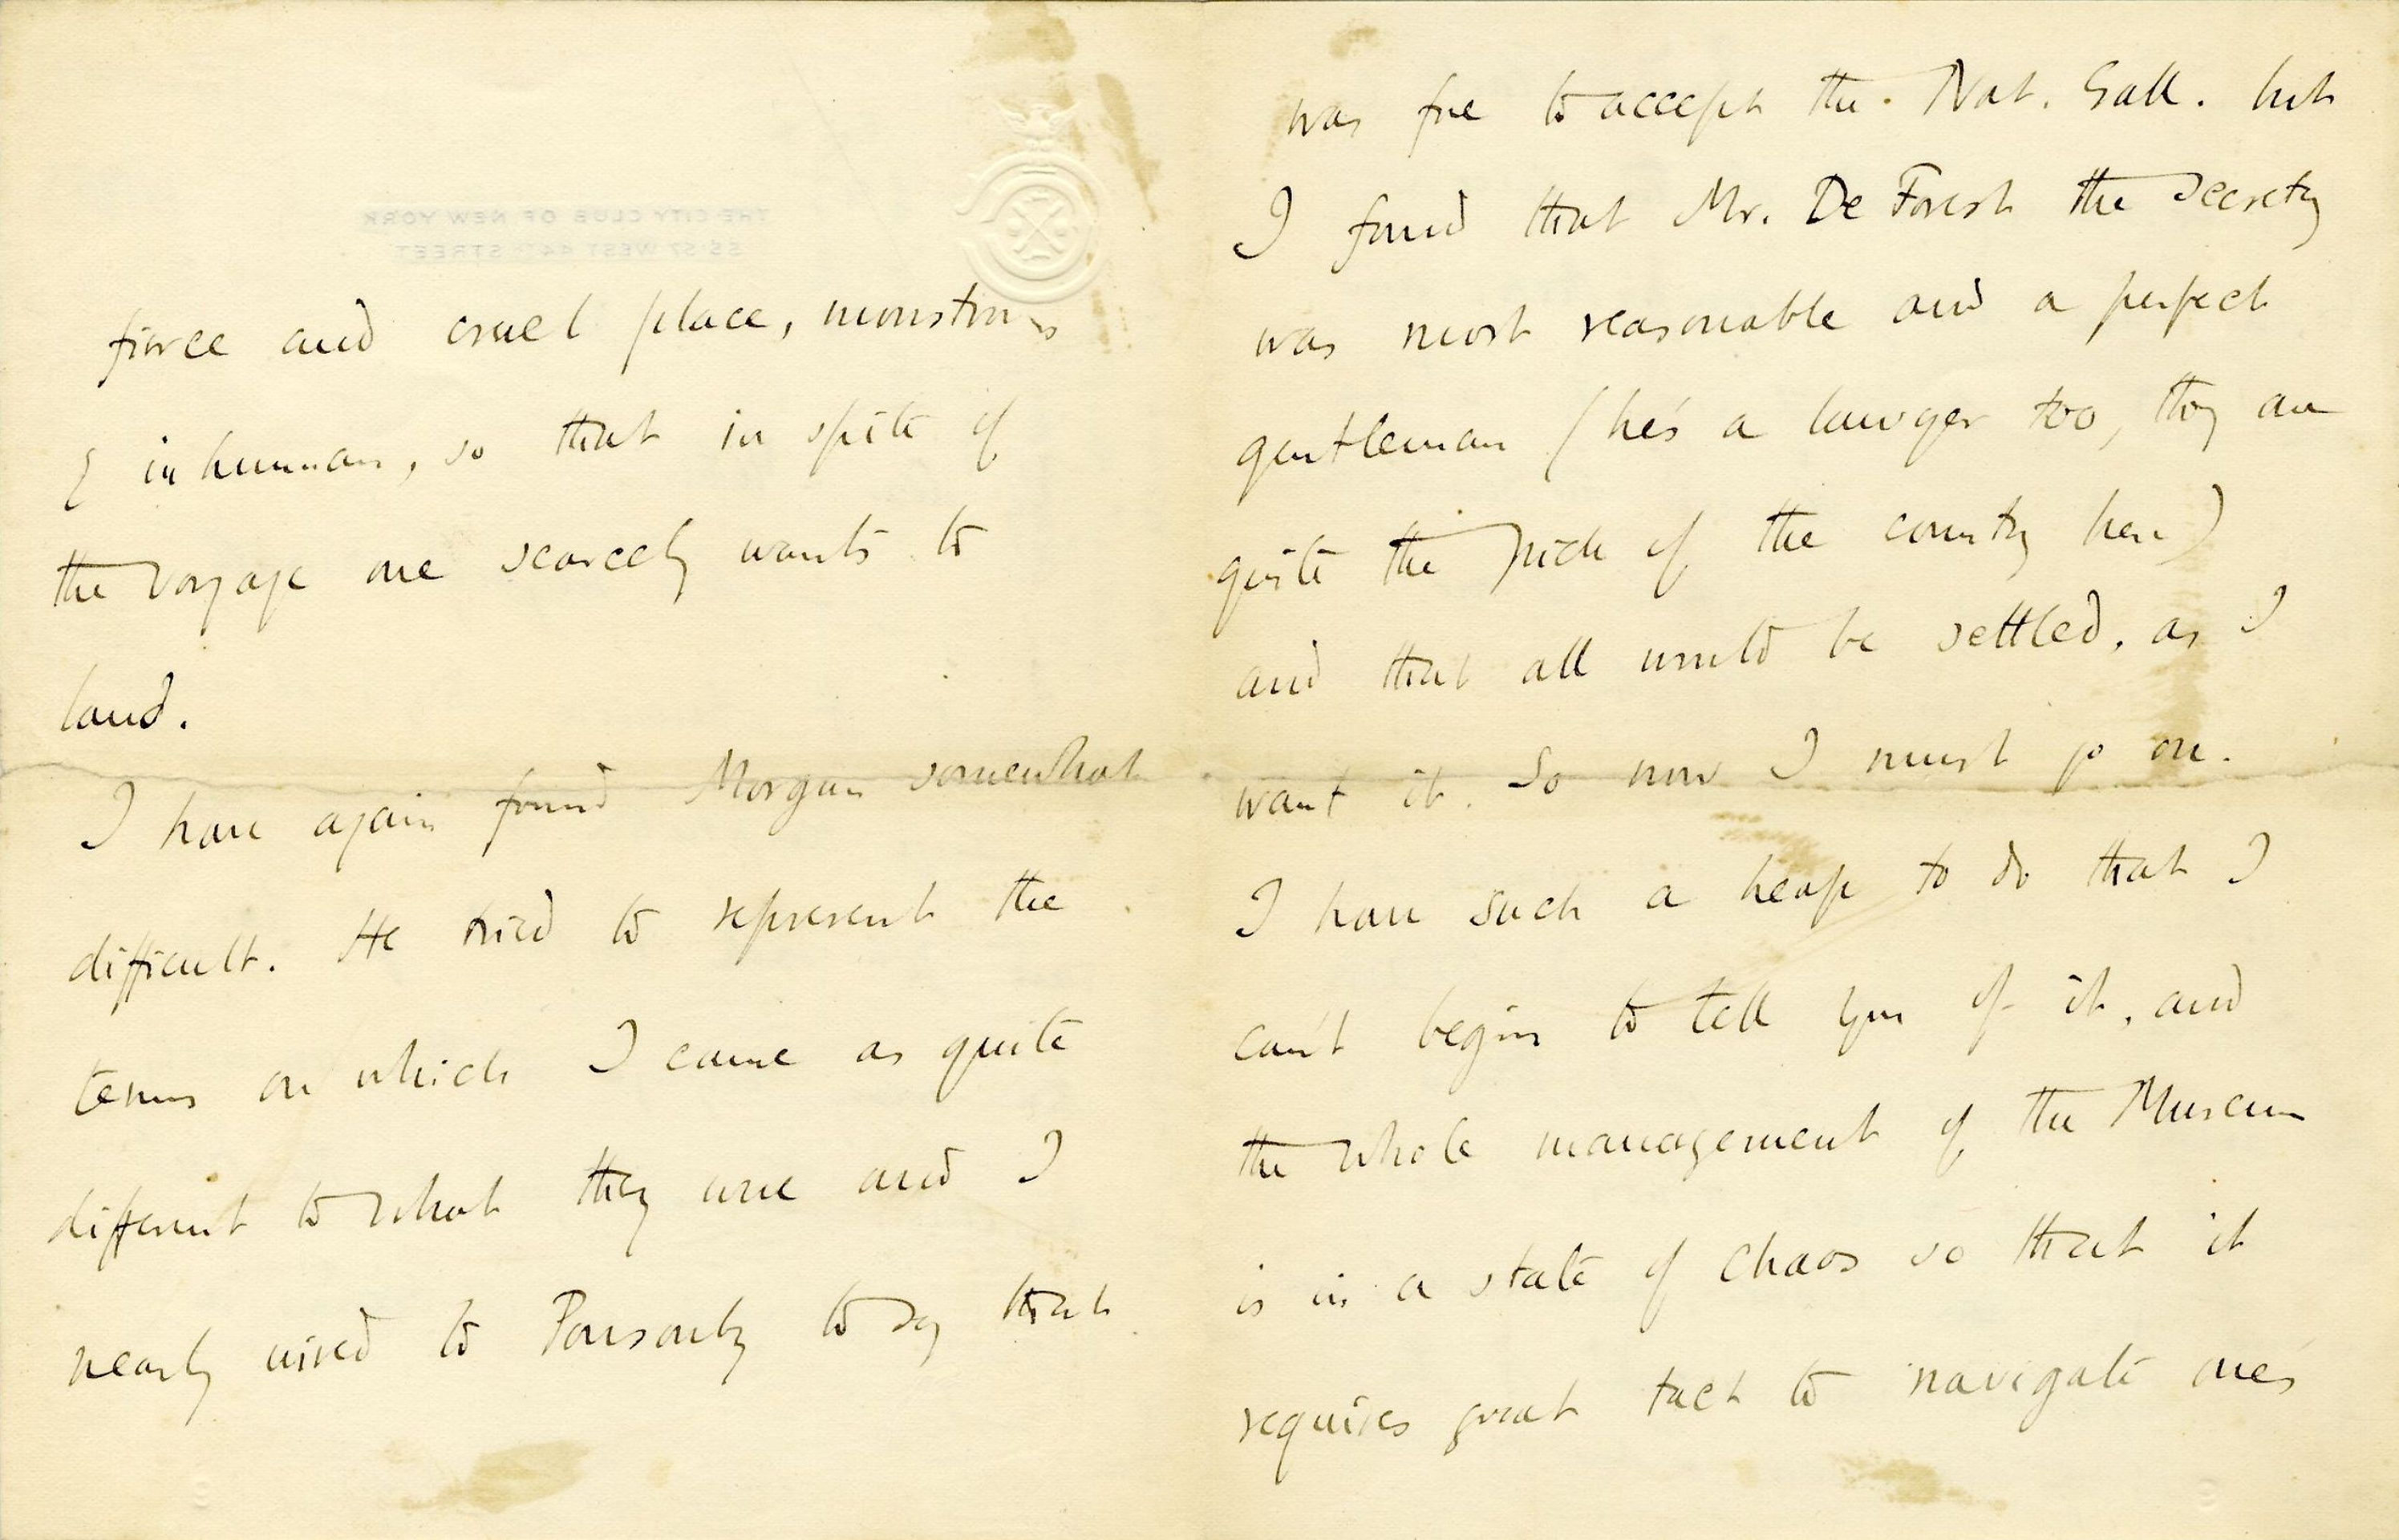 THE CITY CLUB OF NEW YORK
55-57 WEST 44TH STREET
fierce and cruel place, monstrous
& inhuman, so that in spite of
the voyage one scarcely wants to
land.
I have again found Morgan somewhat
difficult. He tried to represent the
terms on which I came as quite
different to what they were and I
nearly wired to Ponsonby to say that
was free to accept the Nat. Gall. but
I found that Mr. De Forest the secrety
was most reasonable and a perfect
gentleman (he's a lawyer too, they are
quite the pick of the country here)
and that all would be settled, as I
want it. So now I must go on.
I have such a heap to do that I
can't begin to tell you of it, and
the whole management of the Museum
is in a state of chaos so that it
requires great tact to navigate one's